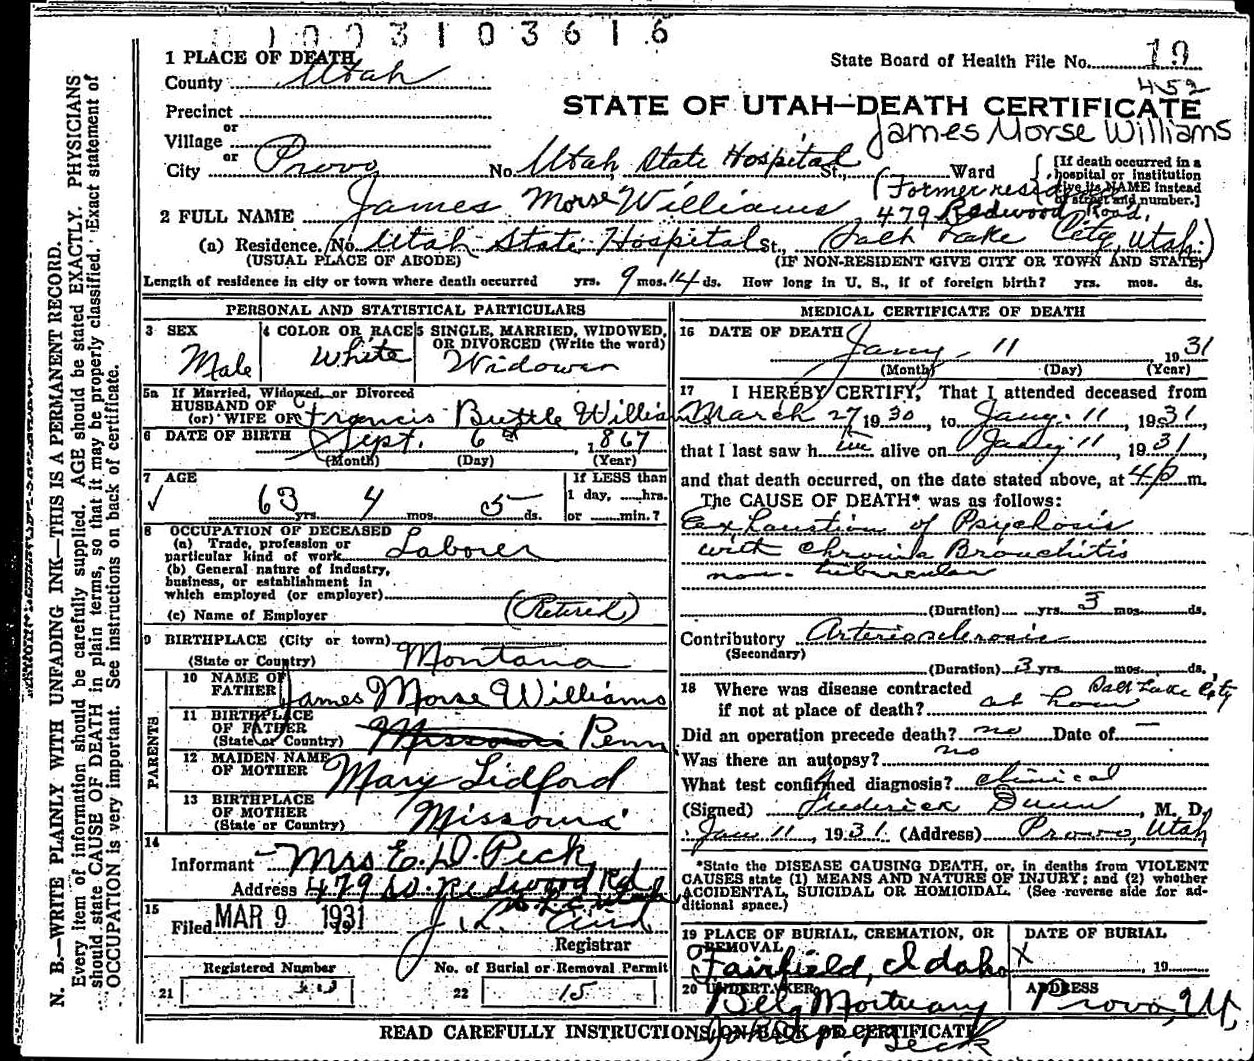 01003103616
1 PLACE OF DEATH
County Utah
State Board of Health File No. 19
452
Precinct
or
STATE OF UTAH—DEATH CERTIFICATE
James Morse Williams
Village
or
City Provo No. Utah State Hospital St., Ward
[If death occurred in a hospital or institution give its NAME instead of street and number.]
2 FULL NAME James Morse Williams
(Former residence
479 Redwood Road,
(a) Residence. No. Utah State Hospital St., Salt Lake City, Utah.)
(USUAL PLACE OF ABODE) (IF NON-RESIDENT GIVE CITY OR TOWN AND STATE)
Length of residence in city or town where death occurred yrs. 9 mos. 14 ds. How long in U. S., if of foreign birth? yrs. mos. ds.
PERSONAL AND STATISTICAL PARTICULARS
3 SEX
Male
4 COLOR OR RACE
White
5 SINGLE, MARRIED, WIDOWED,
OR DIVORCED (Write the word)
Widower
5a If Married, Widowed, or Divorced
HUSBAND OF
(or) WIFE OF Francis Buttle Williams
6 DATE OF BIRTH Sept. 6 1867
(Month) (Day) (Year)
7 AGE
63 yrs. 4 mos. 5 ds.
If LESS than
1 day, hrs.
or min.?
8 OCCUPATION OF DECEASED
(a) Trade, profession or
particular kind of work Laborer
(b) General nature of industry,
business, or establishment in
which employed (or employer)
(c) Name of Employer (Retired)
9 BIRTHPLACE (City or town)
(State or Country) Montana
PARENTS
10 NAME OF
FATHER James Morse Williams
11 BIRTHPLACE
OF FATHER
(State or Country) Missouri Penn
12 MAIDEN NAME
OF MOTHER Mary Lidford
13 BIRTHPLACE
OF MOTHER
(State or Country) Missouri
14
Informant Mrs E. D. Peck
Address 479 So. Redwood Rd
S.L.C. Utah
15
Filed MAR 9 1931
Registrar
Registered Number
21
No. of Burial or Removal Permit
22 15
MEDICAL CERTIFICATE OF DEATH
16 DATE OF DEATH
Jany. 11 1931
(Month) (Day) (Year)
17 I HEREBY CERTIFY, That I attended deceased from
March 27, 1930, to Jany. 11, 1931,
that I last saw him alive on Jany 11, 1931,
and that death occurred, on the date stated above, at 4 p m.
The CAUSE OF DEATH* was as follows:
Exhaustion of Psychosis
with chronic Bronchitis
non-tubercular
(Duration) yrs. 3 mos. ds.
Contributory Arteriosclerosis
(Secondary)
(Duration) 3 yrs. mos. ds.
18 Where was disease contracted
if not at place of death? at home Salt Lake City
Did an operation precede death? no Date of —
Was there an autopsy? no
What test confirmed diagnosis? clinical
(Signed) Frederick Dunn, M. D.
Jan 11, 1931. (Address) Provo, Utah
*State the DISEASE CAUSING DEATH, or, in deaths from VIOLENT
CAUSES state (1) MEANS AND NATURE OF INJURY; and (2) whether
ACCIDENTAL, SUICIDAL OR HOMICIDAL. (See reverse side for ad-
ditional space.)
19 PLACE OF BURIAL, CREMATION, OR
REMOVAL
Fairfield, Idaho
DATE OF BURIAL
X , 19
20 UNDERTAKER
Berg Mortuary
ADDRESS
Provo, Ut.
READ CAREFULLY INSTRUCTIONS ON BACK OF CERTIFICATE
N. B.—WRITE PLAINLY WITH UNFADING INK—THIS IS A PERMANENT RECORD.
Every item of information should be carefully supplied. AGE should be stated EXACTLY. PHYSICIANS
should state CAUSE OF DEATH in plain terms, so that it may be properly classified. Exact statement of
OCCUPATION is very important. See instructions on back of certificate.